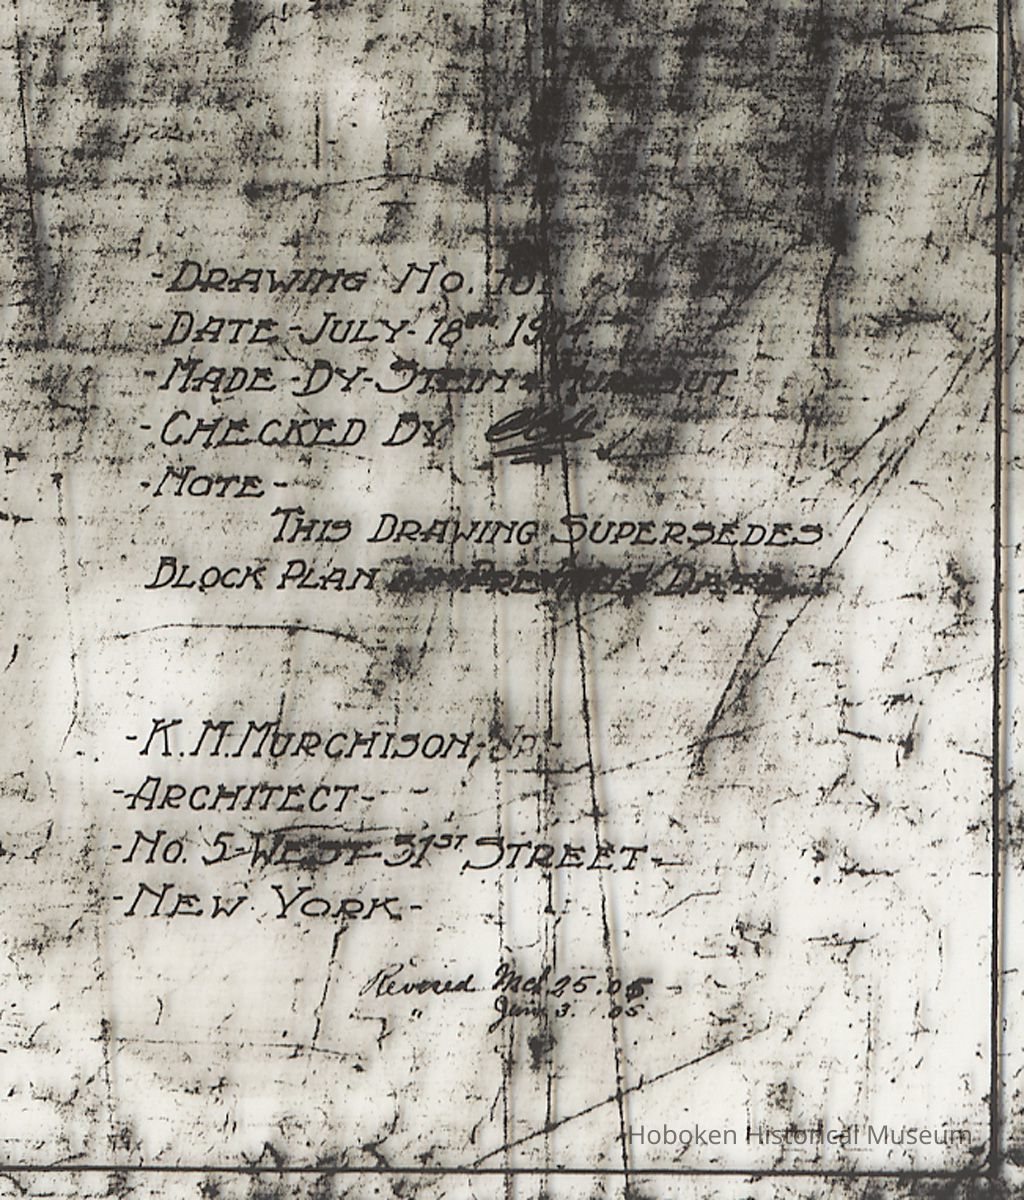 -DRAWING No.
-DATE-JULY-18TH 1904-
-MADE-BY-STEIN
-CHECKED BY
-NOTE-
THIS DRAWING SUPERSEDES
BLOCK PLAN OF PREVIOUS DATE
-K.M.MURCHISON, JR.-
-ARCHITECT-
-No. 5-WEST-31ST. STREET-
-NEW YORK-
Revised Mch 25.05
" Jun 3. 05
Hoboken Historical Museum